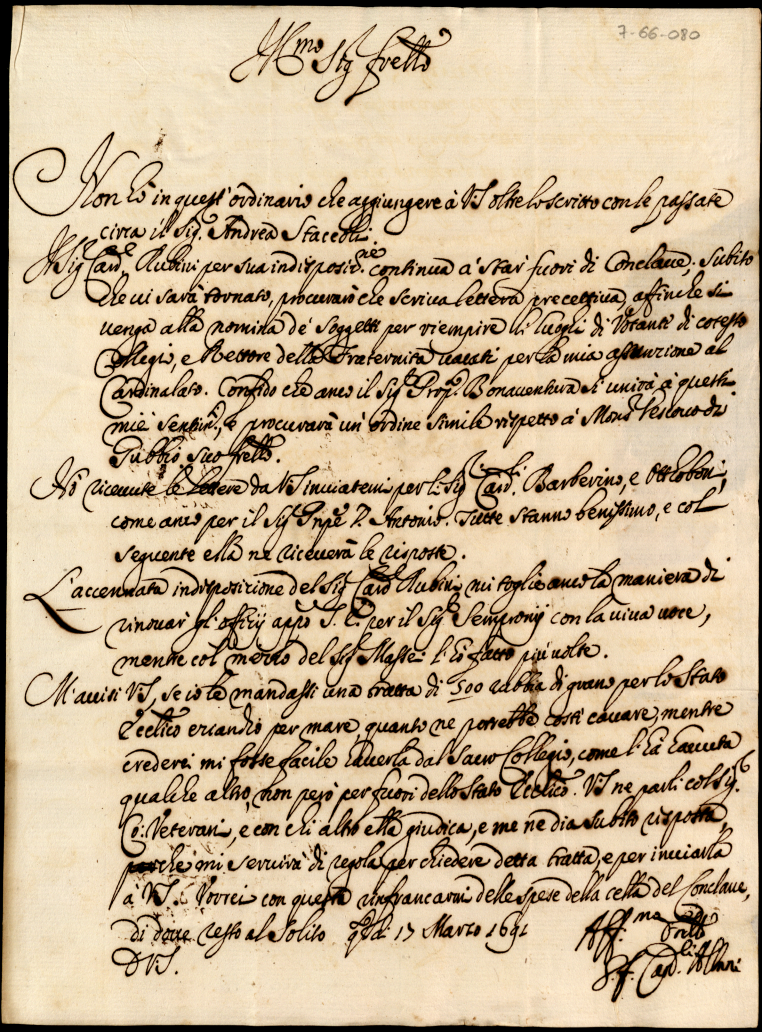 7-66-080
Ill.mo Sig.r Frello
Non hò in quest'ordinario che aggiungere à V.S. oltre lo scritto con le passate
circa il Sig.r Andrea Staccoli.
Il Sig.r Card.le Rubini per sua indisposiz.ne continua à star fuori di Conclave. Subito
che vi sarà tornato, procurarò che scriva lettera precettiva, affinche si
venga alla nomina de' Soggetti per riempire li luoghi di Votanti di cotesto
Collegio, e Rettore della Fraternita vacati per la mia assunzione al
Cardinalato. Confido che anco il Sig.r Prop.o Bonaventura si unirà à questi
miei sentim.ti, e procurarà un ordine simile rispetto à Mons.r Vescovo di
Gubbio suo frello.
Hò ricevute le lettere da V.S. inviatemi per li Sig.ri Card.li Barberino, e Ottoboni,
come anco per il Sig.r Pnpe D. Antonio. Tutte stanno benissimo, e col
seguente ella ne riceverà le risposte.
L'accennata indisposizione del Sig.r Card.l Rubini mi toglie anco la maniera di
rinovar gl'officij app.o S. E. per il Sig.r Sempronij con la viva voce,
mentre col mezzo del Sig.r Massei l'hò fatto più volte.
M'avvisi V.S., se io le mandassi una tratta di 500 rubbia di grano per lo Stato
Ecclico etiandio per mare, quanto ne potrebbe costì cavare, mentre
crederei mi fosse facile haverla dal Sacro Collegio, come l'hà havuta
qualche altro, non però per fuori dello Stato Ecclico. V.S. ne parli col Sig.r
Co: Veterani, e con chi altro ella giudica, e me ne dia subito risposta,
perche mi servirà di regola per chiedere detta tratta, e per inviarla
à V.S. Vorrei con questa rinfrancarmi delle spese della cella del Conclave,
di dove resto al solito q.sto dì 17 Marzo 1691
D V.S.
Aff.mo Frello
G. F. Card.l Albani